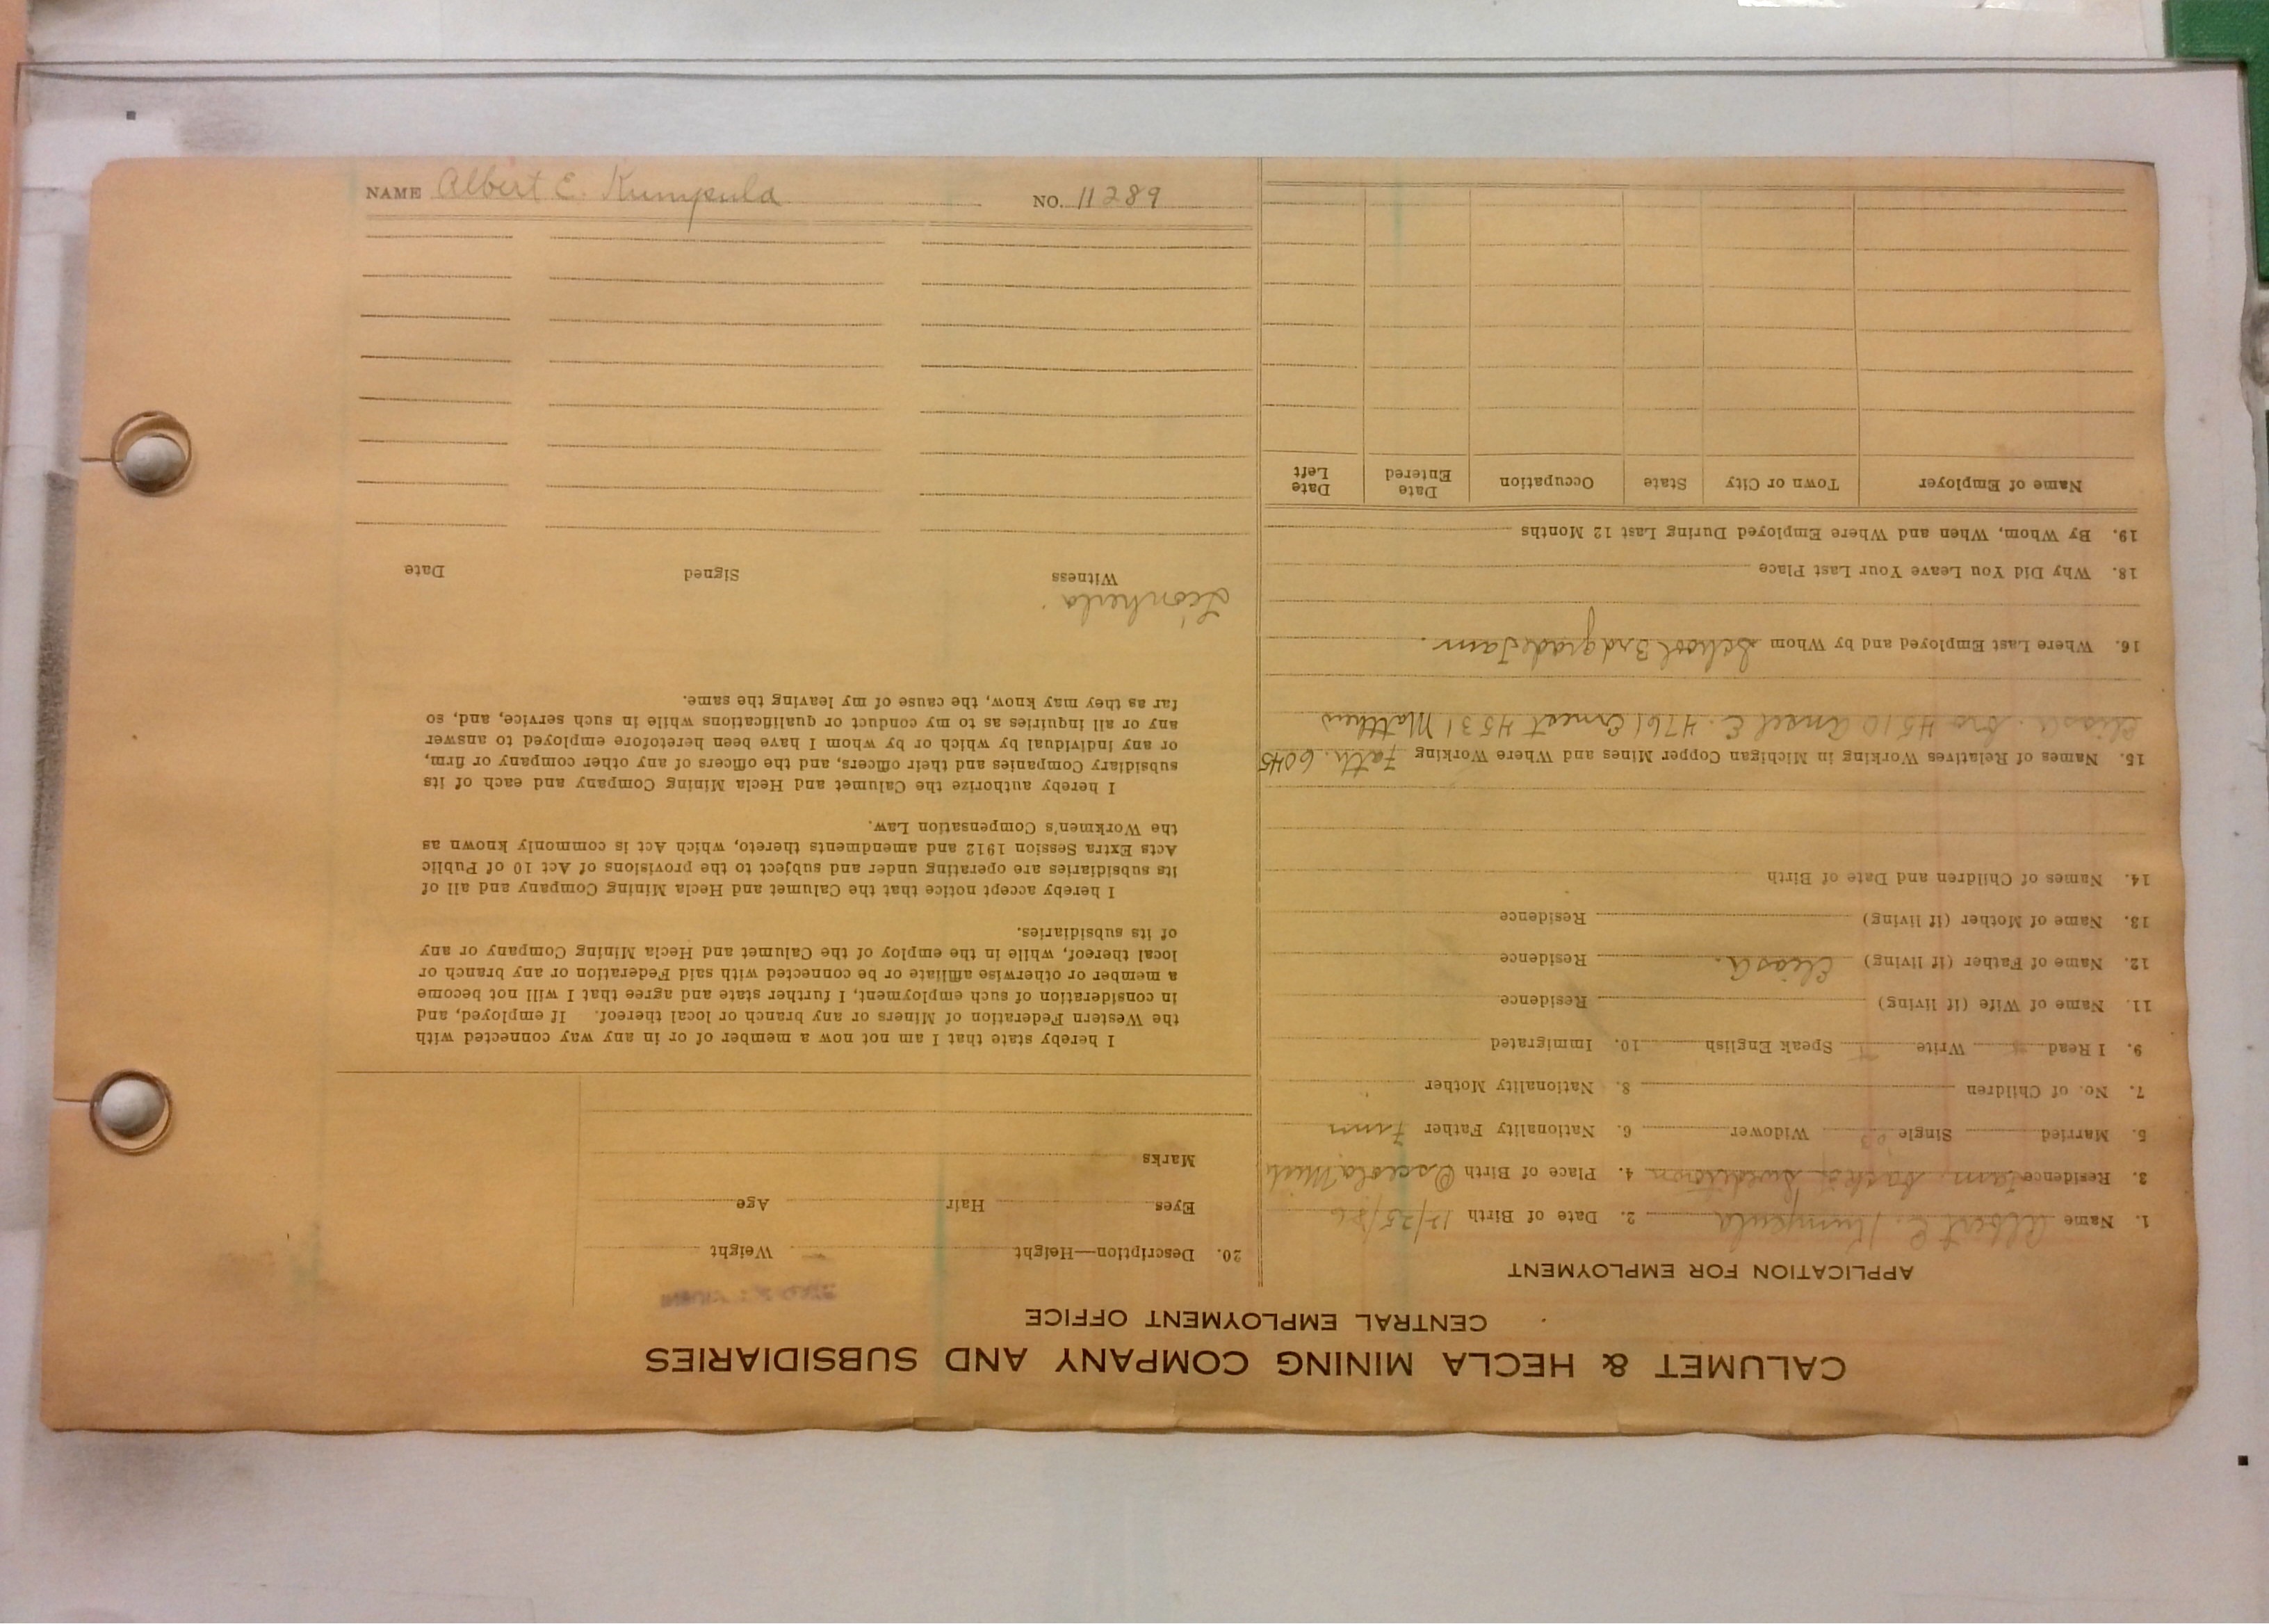 CALUMET & HECLA MINING COMPANY AND SUBSIDIARIES
CENTRAL EMPLOYMENT OFFICE
APPLICATION FOR EMPLOYMENT
1. Name Albert E. Kumpula 2. Date of Birth 12/25/
3. Residence Tam. back of 4. Place of Birth Osceola Mich
5. Married Single Widower 6. Nationality Father Finn
7. No. of Children 8. Nationality Mother
9. I Read Write Speak English 10. Immigrated
11. Name of Wife (if living) Residence
12. Name of Father (if living) Elias A. Residence
13. Name of Mother (if living) Residence
14. Names of Children and Date of Birth
15. Names of Relatives Working in Michigan Copper Mines and Where Working Fath. 6045
Elias A. Bro 4510 Ansel E. 4761 Ernest 4531 Matthew
16. Where Last Employed and by Whom School 3rd grade Tam.
18. Why Did You Leave Your Last Place
19. By Whom, When and Where Employed During Last 12 Months
Name of Employer Town or City State Occupation Date Entered Date Left
20. Description—Height Weight
Eyes Hair Age
Marks
I hereby state that I am not now a member of or in any way connected with
the Western Federation of Miners or any branch or local thereof. If employed, and
in consideration of such employment, I further state and agree that I will not become
a member or otherwise affiliate or be connected with said Federation or any branch or
local thereof, while in the employ of the Calumet and Hecla Mining Company or any
of its subsidiaries.
I hereby accept notice that the Calumet and Hecla Mining Company and all of
its subsidiaries are operating under and subject to the provisions of Act 10 of Public
Acts Extra Session 1912 and amendments thereto, which Act is commonly known as
the Workmen's Compensation Law.
I hereby authorize the Calumet and Hecla Mining Company and each of its
subsidiary Companies and their officers, and the officers of any other company or firm,
or any individual by which or by whom I have been heretofore employed to answer
any or all inquiries as to my conduct or qualifications while in such service, and, so
far as they may know, the cause of my leaving the same.
Witness Signed Date
NAME Albert E. Kumpula NO. 11289